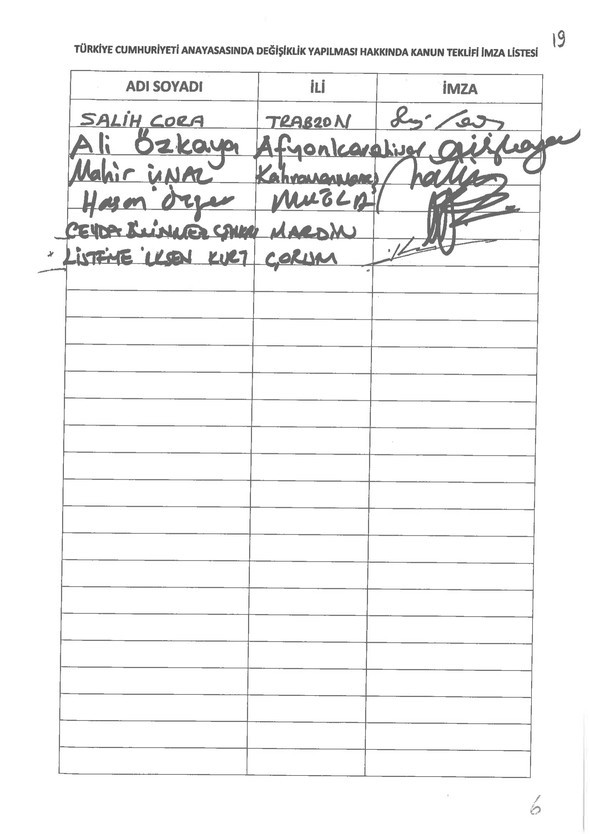 19
TÜRKİYE CUMHURİYETİ ANAYASASINDA DEĞİŞİKLİK YAPILMASI HAKKINDA KANUN TEKLİFİ İMZA LİSTESİ
ADI SOYADI İLİ İMZA
SALİH CORA TRABZON
Ali Özkaya Afyonkarahisar
Mahir ÜNAL Kahramanmaraş
Hasan Özyer MUĞLA
CEYDA MARDİN
LİSTEME İLKSEN KURT ÇORUM
6